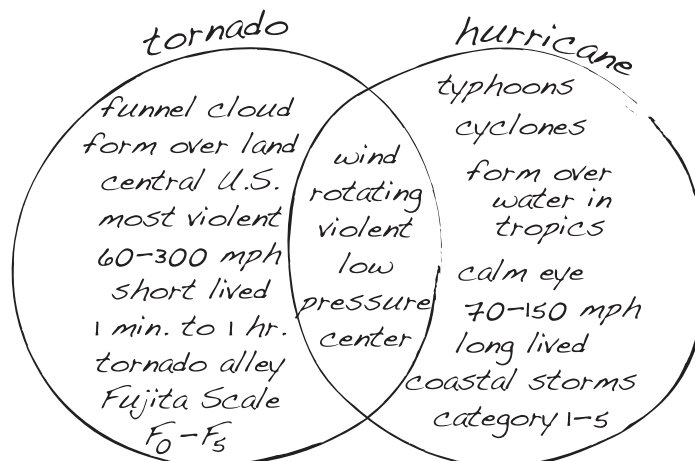 tornado
funnel cloud
form over land
central U.S.
most violent
60-300 mph
short lived
1 min. to 1 hr.
tornado alley
Fujita Scale
F0-F5
wind
rotating
violent
low
pressure
center
hurricane
typhoons
cyclones
form over
water in
tropics
calm eye
70-150 mph
long lived
coastal storms
category 1-5